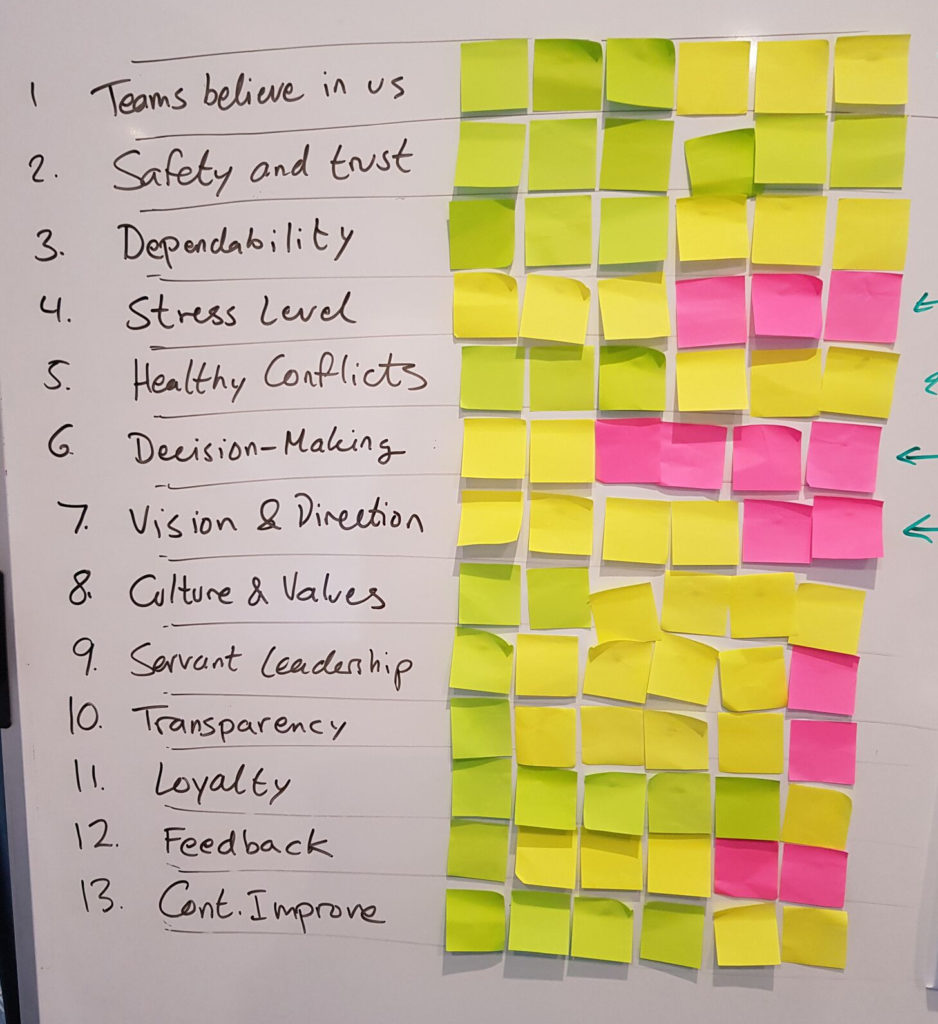 1 Teams believe in us
2. Safety and trust
3. Dependability
4. Stress Level
5. Healthy Conflicts
6 Decision-Making
7. Vision & Direction
8. Culture & Values
9. Servant Leadership
10. Transparency
11. Loyalty
12. Feedback
13. Cont. Improve